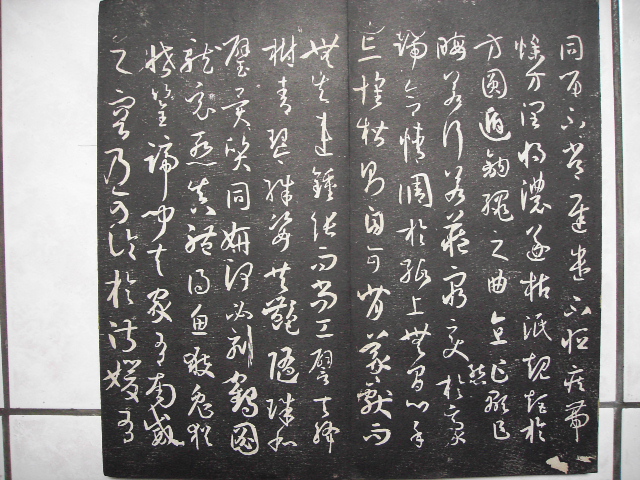 同留不常遲遣不恒疾帶
燥方潤將濃遂枯泯規矩於
方圓遁鉤繩之曲直乍顯乍
晦若行若藏窮變態於豪
端合情調於紙上無間心手
忘懷楷則自可背羲獻而
無失違鍾張而尚工譬夫絳
樹青琴殊姿共艷隨珠和
璧異質同妍何必刻鶴圖
龍竟慚真體得魚獲兔猶
恡筌蹄聞夫家有南威
之容乃可論於淑媛有